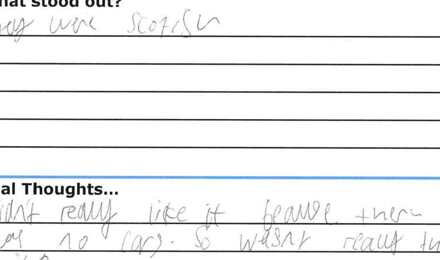 hat stood out?
ey were scotish
al Thoughts...
idn't really like it because there
no cars. So wasn't really